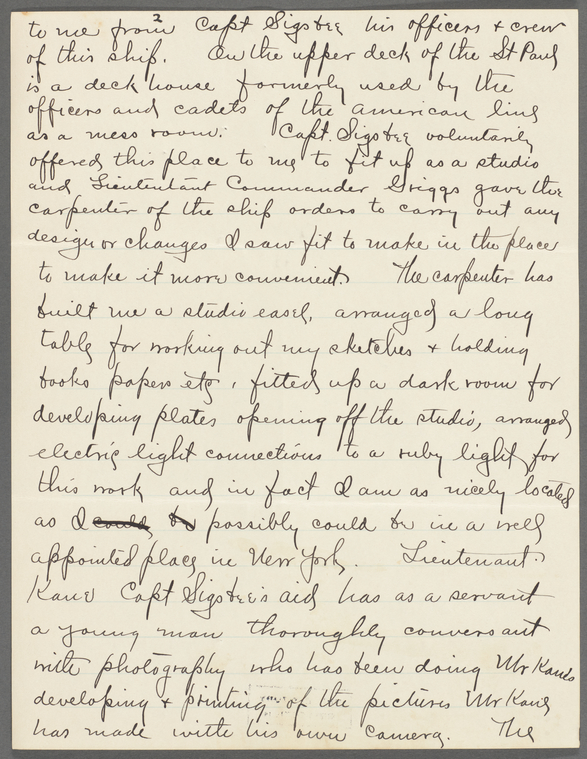 2
to me from Capt Sigsbee his officers + crew
of this ship. On the upper deck of the St Paul
is a deck house formerly used by the
officers and cadets of the american line
as a mess room. Capt. Sigsbee voluntarily
offered this place to me to fit up as a studio
and Lieutentant Commander Driggs gave the
carpenter of the ship orders to carry out any
design or changes I saw fit to make in the place
to make it more convenient. The carpenter has
built me a studio easel, arranged a long
table for working out my sketches + holding
books papers etc, fitted up a dark room for
developing plates opening off the studio, arranged
electric light connections to a ruby light for
this work and in fact I am as nicely located
as I could be possibly could be in a well
appointed place in New York. Lieutenant
Kane Capt Sigsbee's aid has as a servant
a young man thoroughly conversant
with photography who has been doing Mr Kane's
developing + printing of the pictures Mr Kane
has made with his own camera. The